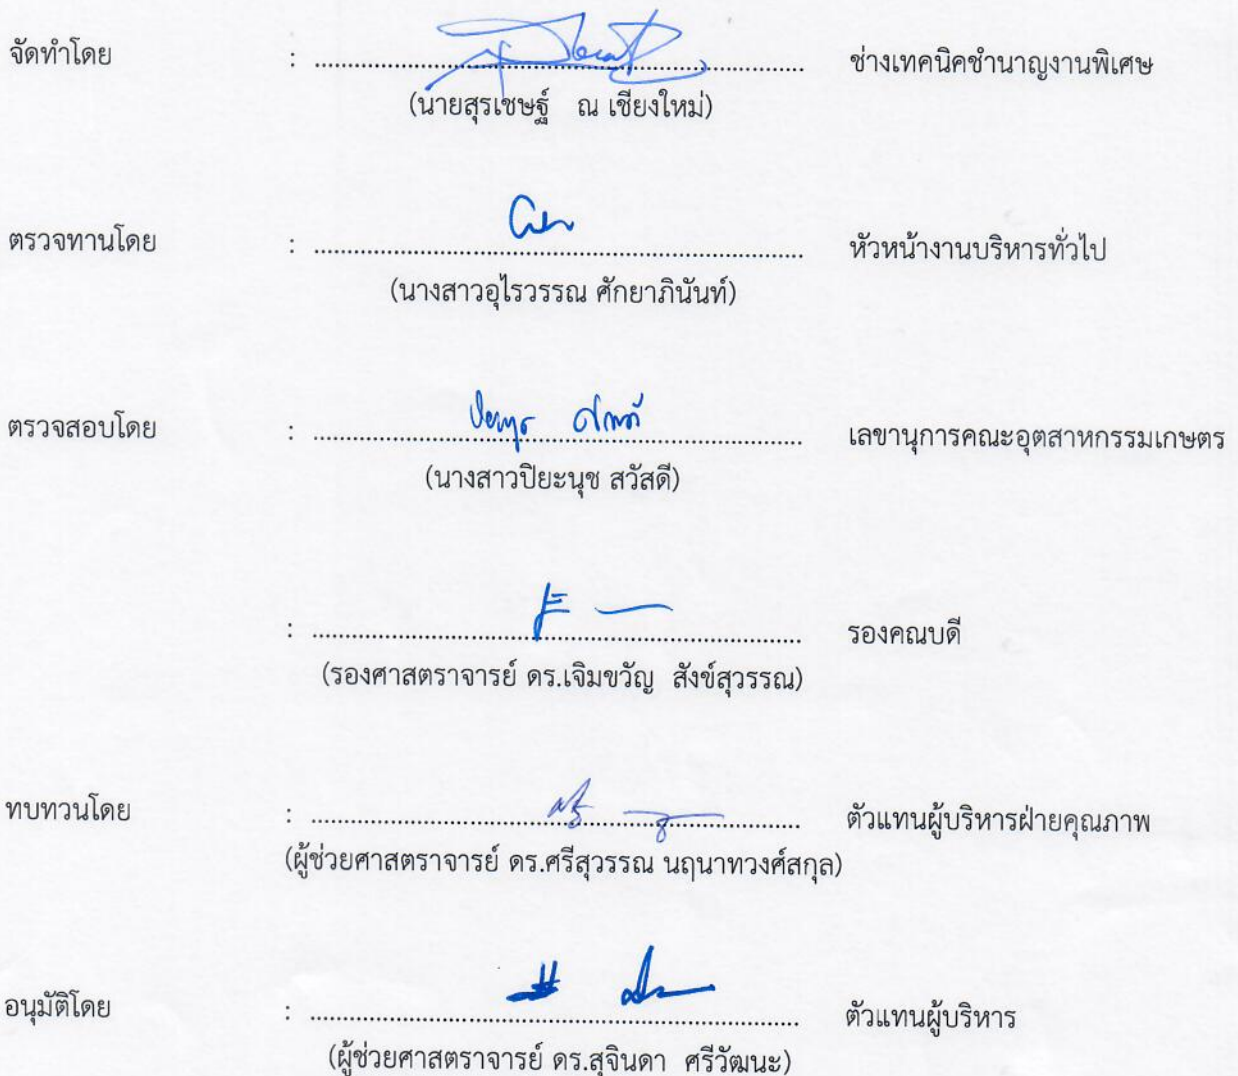 จัดทำโดย : ........................................ ช่างเทคนิคชำนาญงานพิเศษ
(นายสุรเชษฐ์ ณ เชียงใหม่)
ตรวจทานโดย : ........................................ หัวหน้างานบริหารทั่วไป
(นางสาวอุไรวรรณ ศักยาภินันท์)
ตรวจสอบโดย : ........................................ เลขานุการคณะอุตสาหกรรมเกษตร
(นางสาวปิยะนุช สวัสดี)
: ........................................ รองคณบดี
(รองศาสตราจารย์ ดร.เจิมขวัญ สังข์สุวรรณ)
ทบทวนโดย : ........................................ ตัวแทนผู้บริหารฝ่ายคุณภาพ
(ผู้ช่วยศาสตราจารย์ ดร.ศรีสุวรรณ นฤนาทวงศ์สกุล)
อนุมัติโดย : ........................................ ตัวแทนผู้บริหาร
(ผู้ช่วยศาสตราจารย์ ดร.สุจินดา ศรีวัฒนะ)